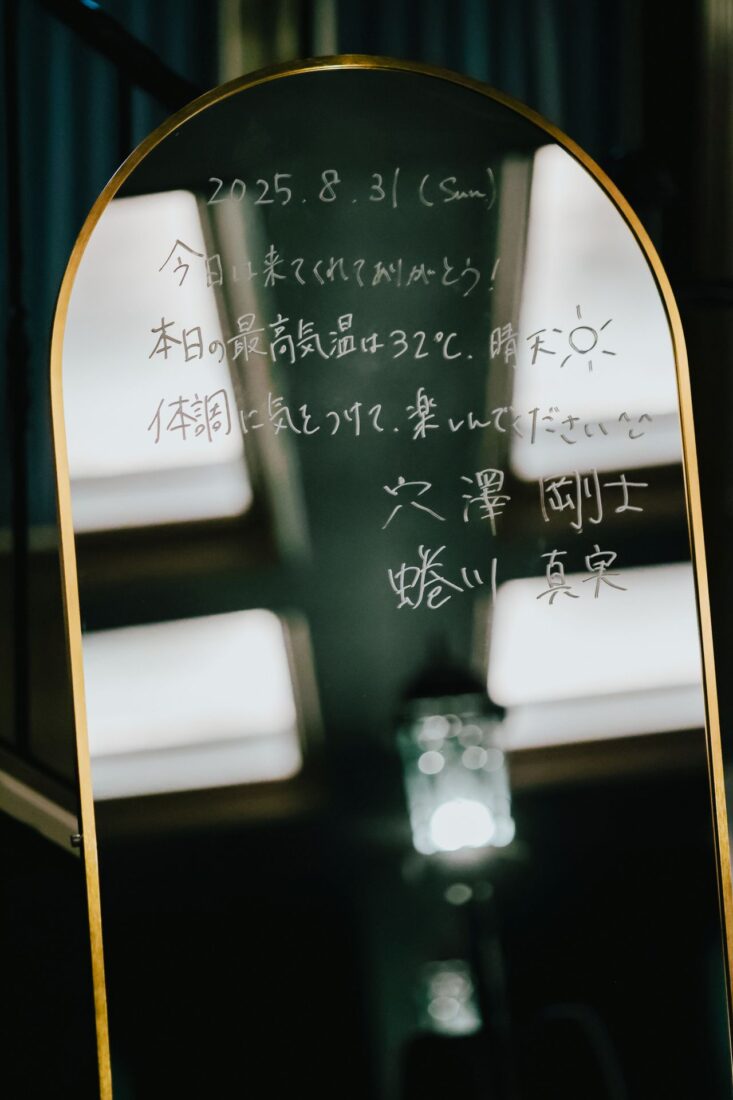 2025.8.31(Sun)
今日は来てくれてありがとう!
本日の最高気温は32℃.晴天☀
体調に気をつけて.楽しんでください^^
穴澤 剛士
蜷川 真実